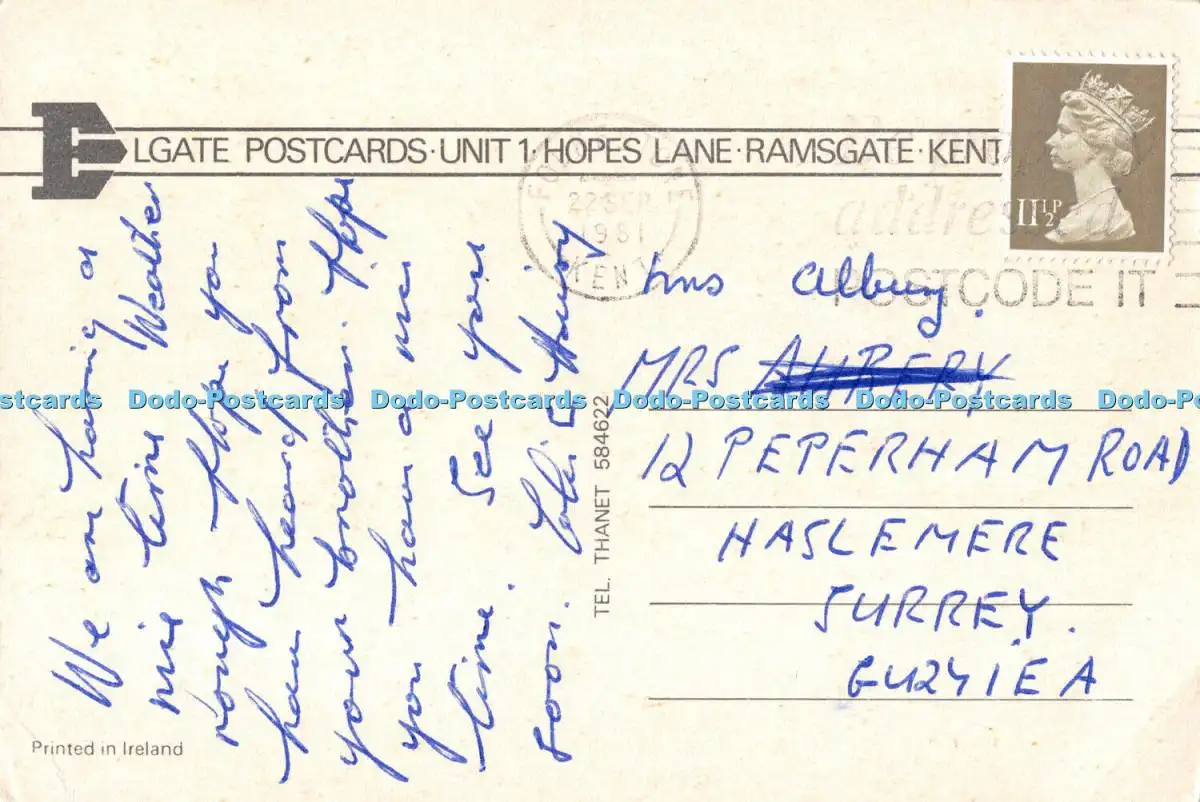 ELGATE POSTCARDS · UNIT 1 · HOPES LANE · RAMSGATE · KENT
FOLKESTONE
22 SEP
1981
KENT
addressed
POSTCODE IT
11½P
We are having a
nice time Weather
rough Hope you
have heard from
your brother. Hope
you have a nice
time. See you
soon.
TEL. THANET 584622
Mrs Albury.
MRS
12 PEPERHAM ROAD
HASLEMERE
SURREY.
GU27 1EA
Printed in Ireland
Dodo-Postcards Dodo-Postcards Dodo-Postcards Dodo-Postcards Dodo-Postcards